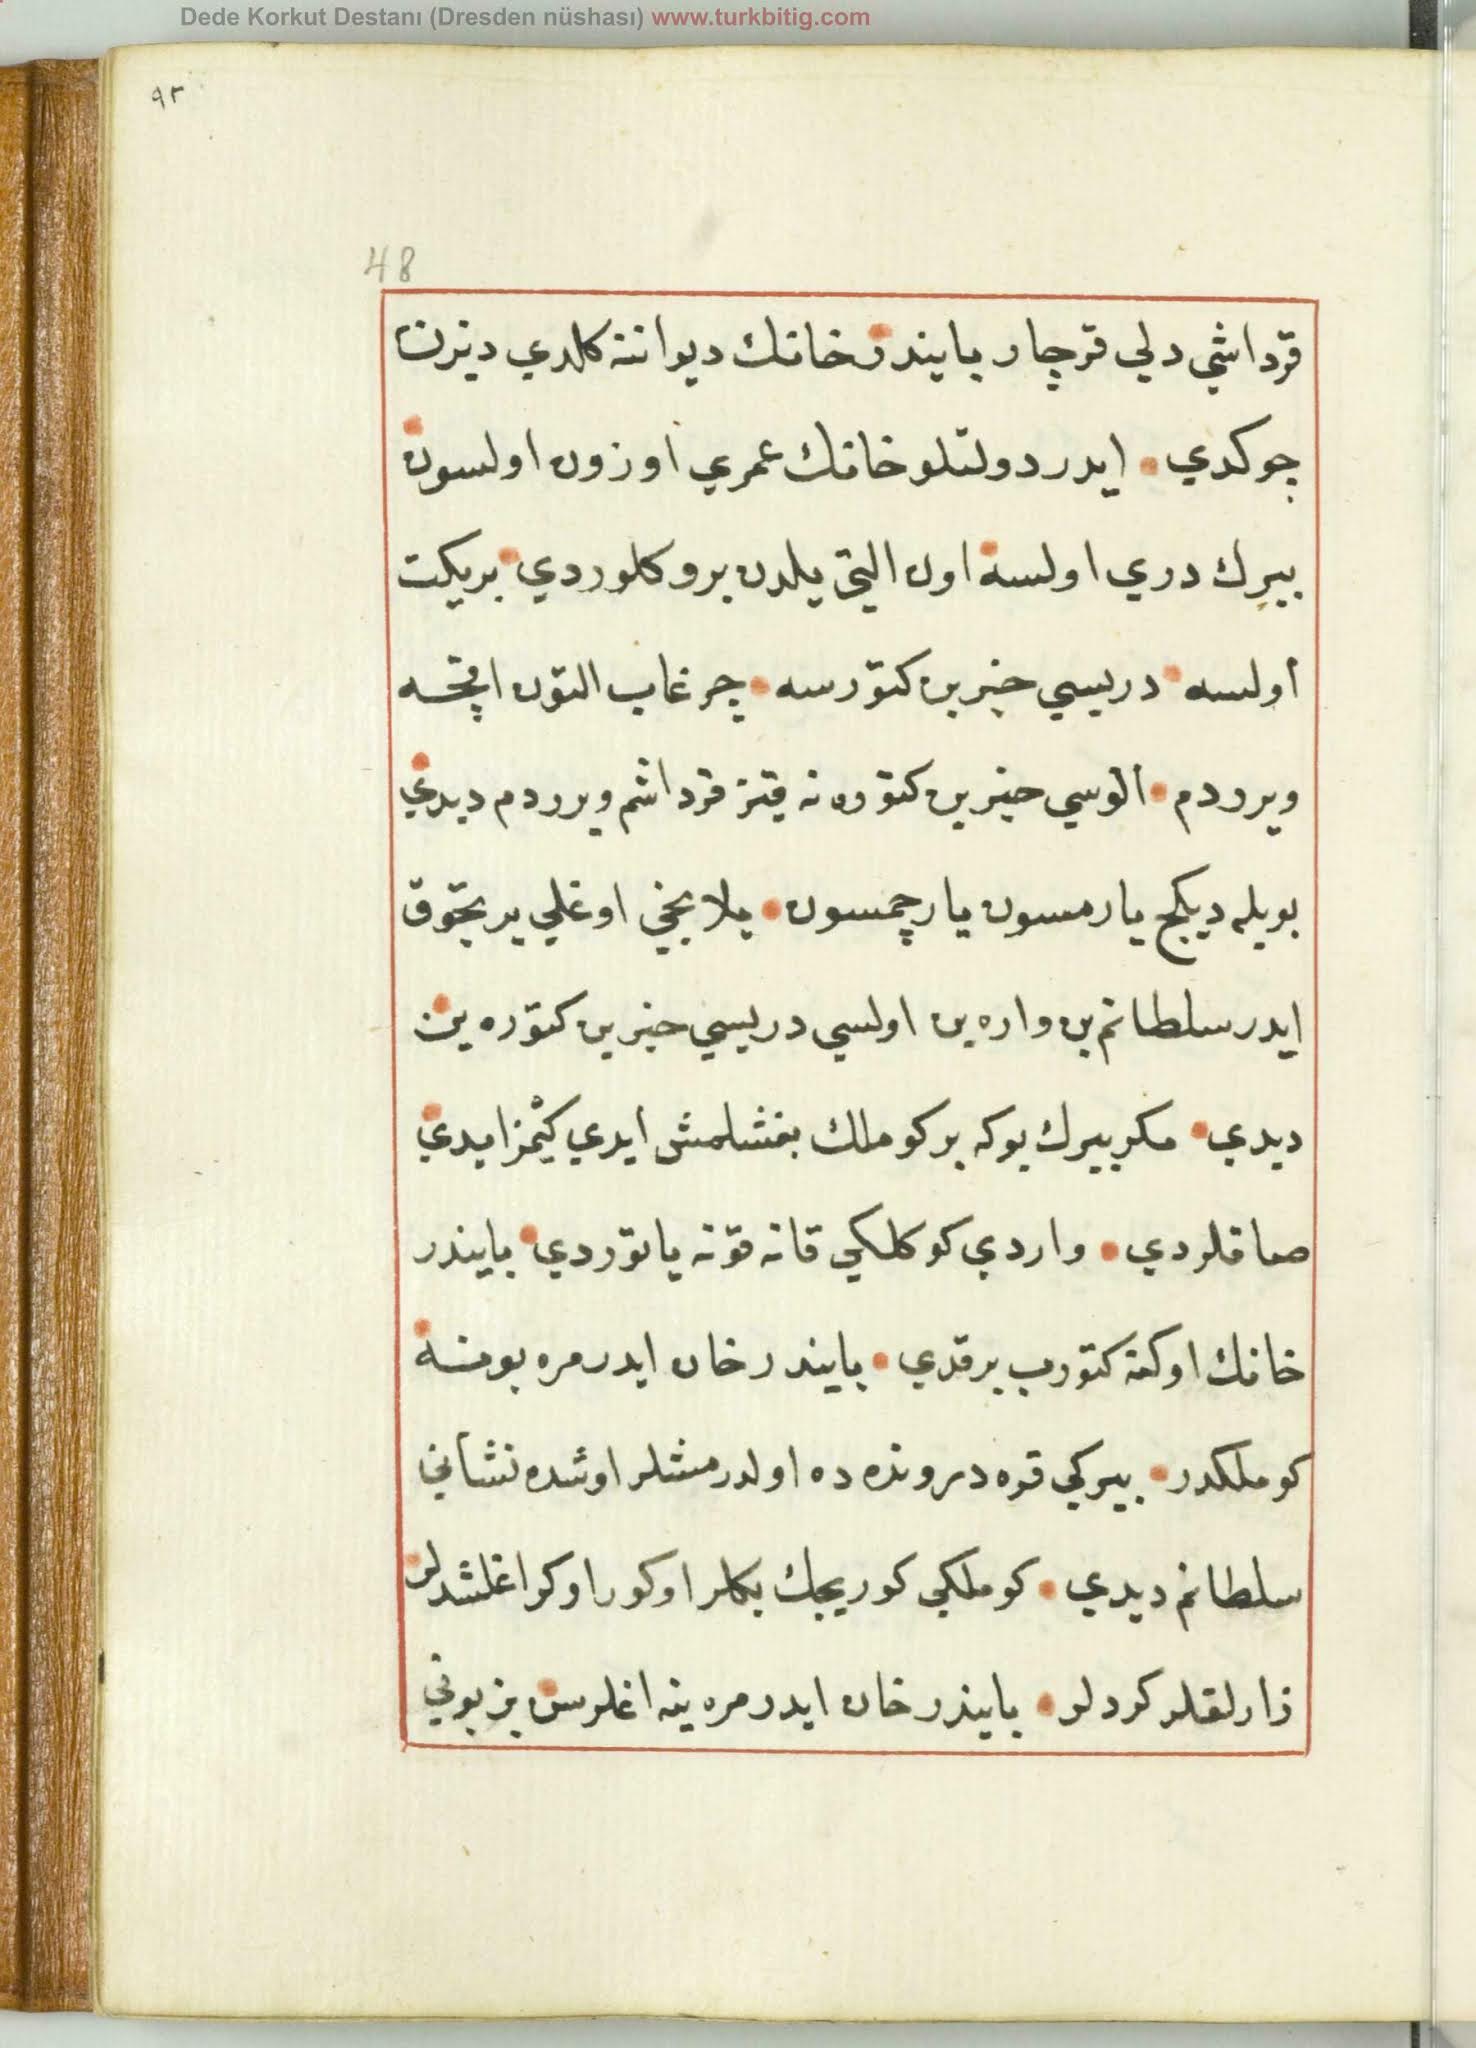 Dede Korkut Destanı (Dresden nüshası) www.turkbitig.com
٩٣
48
قرداشي دلي قرچار بايندر خانك ديواننه كلدي ديزن
چوكدي • ايدر دولتلو خانك عمري اوزون اولسون
بيرك دري اولسه اون التي يلدن برو كلوردي • بر يكت
أولسه • دريسي خبرين كتورسه • چرغاب التون اقچه
ويرردم • ألوسي خبرين كتوره نه قيز قرداشم ويرردم ديدي
بويله ديكج يارمسون يارچمسون • يلانجي اوغلي يرتجوق
ايدر سلطانم بن واره ين اولسي دريسي خبرين كتوره ين
ديدي • مكر بيرك بوكه بر كوملك بغشلمش ايدي كيمز ايدي
صاقلردي • واردي كوكلكي قانه قونه ياتوردي • بايندر
خانك اوكنه كتورب برقدي • بايندر خان ايدر مره بو نه
كوملكدر • بيركي قره دروندده اولدرمشلر اوشده نشاني
سلطانم ديدي • كوملكي كوريجك بكلر اوكور اوكور اغلشدلر
زارلقلر كردلر • بايندر خان ايدر مره ينه اغلرسن بز بوني